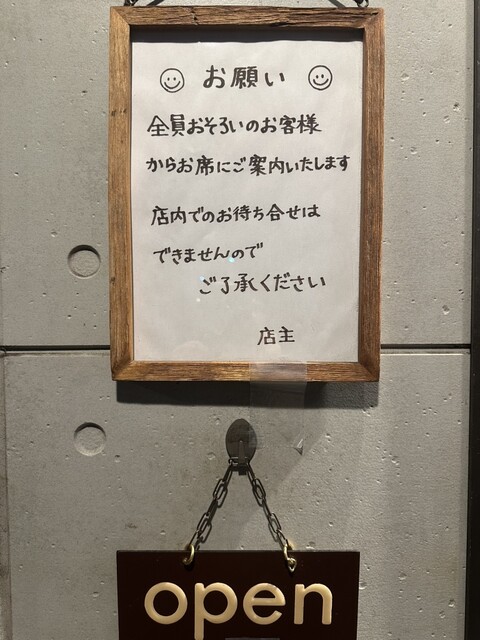 お願い
全員おそろいのお客様
からお席にご案内いたします
店内でのお待ち合せは
できませんので
ご了承ください
店主
open